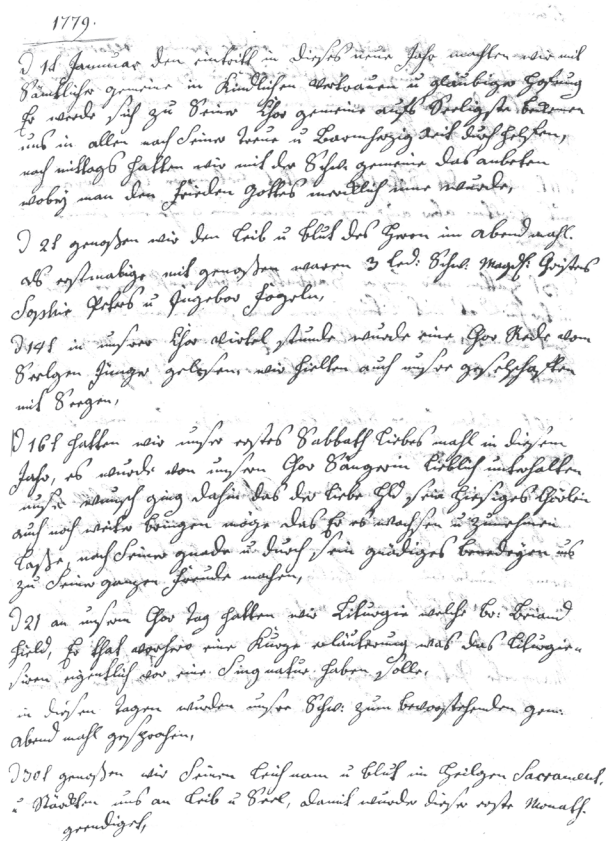 1779.
D 1t Januar den eintritt in dieses neue Jahr machten wir mit
Sämtlicher gemeine in Kindlichen vertrauen u gläubiger Hofnung
Er werde sich zu Seiner Chor gemeine aufs Seeligste bekenen
uns in allen nach Seiner treue u Barmherzigkeit durch helffen,
nach mittags hatten wir mit der Schw. gemeine das anbeten
wobey man den Frieden Gottes merklich inne wurde,
D 2t genoßen wir den Leib u Blut des Herrn im abend mahl.
als erstmalige mit genoßen waren 3 led: Schw. Magd:
Sophie Peters u Ingebor Fogeln,
D 14t in unsrer Chor virtel stunde wurde eine Chor Rede vom
Seelgen Jünger gelesen, wir hielten auch unsre geselschafften
mit Seegen,
D 16t hatten wir unser erstes Sabbath Liebes mahl in diesem
Jahr, es wurde von unsern Chor Sängerin lieblich unterhalten
unser wunsch ging dahin das der liebe Hld sein hiesiges Chörlein
auch noch weiter bringen möge das Er es wachsen u zunehmen
laße, nach Seiner gnade u durch sein gnädiges benedeyen uns
zu Seiner ganzen Freude machen,
D 21 an unserm Chor Tag hatten wir Liturgie welche Br: Briand
hield, Er that vorhero eine Kurze erläuterung was das Liturgie-
siren eigentlich vor eine Sing natur haben solle,
in diesen Tagen wurden unsre Schw: zum bevorstehenden gem:
abend mahl gesprochen,
D 30t genoßen wir Seinen Leichnam u Blut im Heilgen Sacrament,
u Stärckten uns an Leib u Seel, damit wurde dieser erste Monath
geendiget,